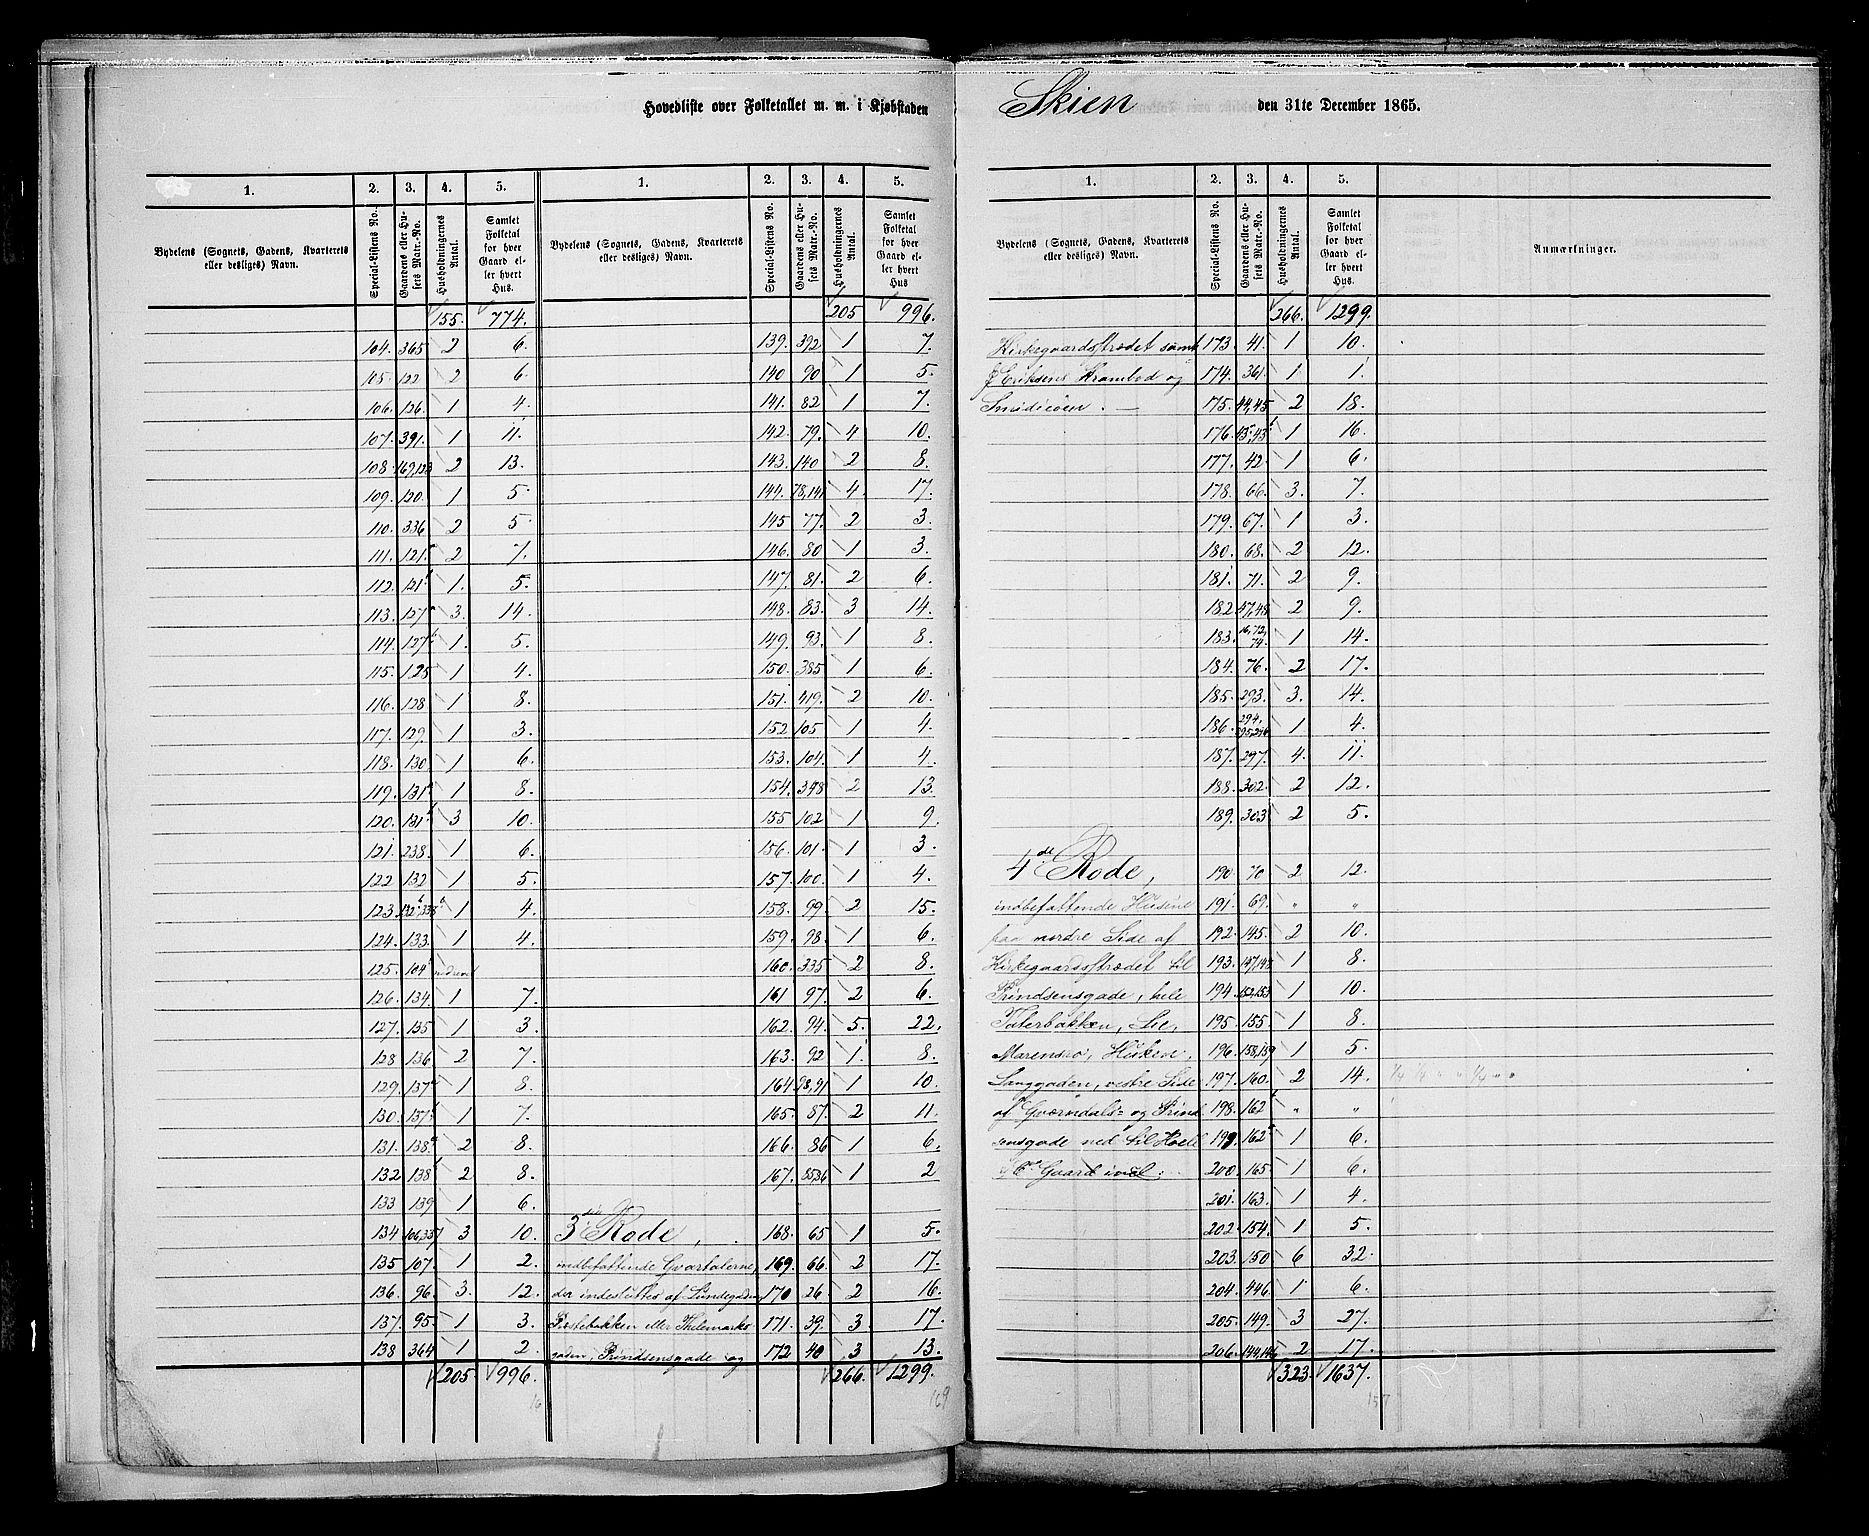 Hovedliste over Folketallet m. m. i Kjøbstaden Skien den 31te December 1865.
1. 2. 3. 4. 5.
Bydelens (Sognets, Gadens, Kvarterets eller desliges) Navn. Special-Listens No. Gaardens eller Husets Matr.-No. Husholdningernes Antal. Samlet Folketal for hver Gaard eller hvert Hus.
155. 774.
104. 365 2 6.
105. 122 2 6.
106. 126. 1 4.
107. 391. 1 11.
108. 169,123 2 13.
109. 120. 1 5.
110. 336 2 5.
111. 121.a 2 7.
112. 121b 1. 5.
113. 127a 3. 14.
114. 127b 1. 5.
115. 125 1 4.
116. 128 1 8.
117. 129. 1 3.
118. 130 1 6.
119. 131a 1 8.
120. 131b 3 10.
121. 238. 1 6.
122 132 1 5.
123 1 4.
124. 133. 1 4.
125. 104
126. 134 1 7.
127. 135 1 3.
128 136 2 7.
129. 137a 1 8.
130. 137b 1 7.
131. 138a 2 8.
132 138b 2 8.
133 139 1 6.
134 106,337 3 10.
135 107. 1 2.
136. 96. 3. 12.
137. 95. 1 3.
138 364 1 2.
205. 996.
1. 2. 3. 4. 5.
Bydelens (Sognets, Gadens, Kvarterets eller desliges) Navn. Special-Listens No. Gaardens eller Husets Matr.-No. Husholdningernes Antal. Samlet Folketal for hver Gaard eller hvert Hus.
205 996.
139. 392 1 7.
140 90 1 5.
141. 82 1 7.
142. 79. 4 10.
143. 140 2 8.
144. 78,141 4 17.
145 77. 2 3.
146. 80 1 3.
147. 81. 2 6.
148. 83. 3 14.
149. 93. 1 8.
150. 385 1 6.
151. 419. 2 10.
152 105 1 4.
153. 104. 1 4.
154. 348 2 13.
155 102 1 9.
156. 101. 1 3.
157. 100. 1 4.
158. 99 2 15.
159. 98. 1 6.
160. 335 2 8.
161 97. 2 6.
162. 94. 5. 22.
163. 92 1. 8.
164 98,91 1 10.
165. 87. 2 11.
166. 86 1 6.
167. 1 2
3die Rode, 168. 65 1 5.
indbefattende Qvartalerne, 169. 66 2 17.
der indesluttes af Lundegaden, 170 26 2 16.
Prestebakken eller Thelemarks 171. 39. 3. 17.
gaden, Prindsensgade og 172 40 3 13.
266. 1299.
169
1. 2. 3. 4. 5.
Bydelens (Sognets, Gadens, Kvarterets eller desliges) Navn. Special-Listens No. Gaardens eller Husets Matr.-No. Husholdningernes Antal. Samlet Folketal for hver Gaard eller hvert Hus. Anmærkninger.
266. 1299.
Kirkegaardsstrædet samt 173. 41. 1 10.
Eriksens Krambod og 174. 361. 1 1.
Smidieøen. — 175. 44,45 2 18.
176. 45,43 1 16.
177. 42. 1 6.
178. 66. 3. 7.
179. 67. 1 3.
180. 68. 2 12.
181. 71. 2 9.
182 47,48 2 9.
183. 16,72,74. 1 14.
184. 76. 2 17.
185. 293. 3. 14.
186. 294, 295,296 1 4.
187. 297. 4. 11.
188. 302. 2 12.
189. 303 2 5.
4de Rode, 190. 70 2 12.
indbefattende Husene 191. 69. " "
paa nordre Side af 192. 145. 2 10.
Kirkegaardsstrædet til 193. 147,148 1 8.
Prindsensgade, hele 194. 152,153 1 10.
Taterbakken, Lie, 195. 155. 1 8.
Marensro, Hisken, 196. 158,159 1 5.
Langgaden, vestre Side 197. 160. 2 14.
af Qværndals- og Prind 198. 162a " "
sensgade ned til 199. 162b 1 6.
Gaard incl. 200. 165. 1 6.
201. 163. 1 4.
202. 154. 1 5.
203. 150 6 32.
204. 446. 1 6.
205. 149. 3 27.
206. 144,146 2 17.
323. 1637.
157